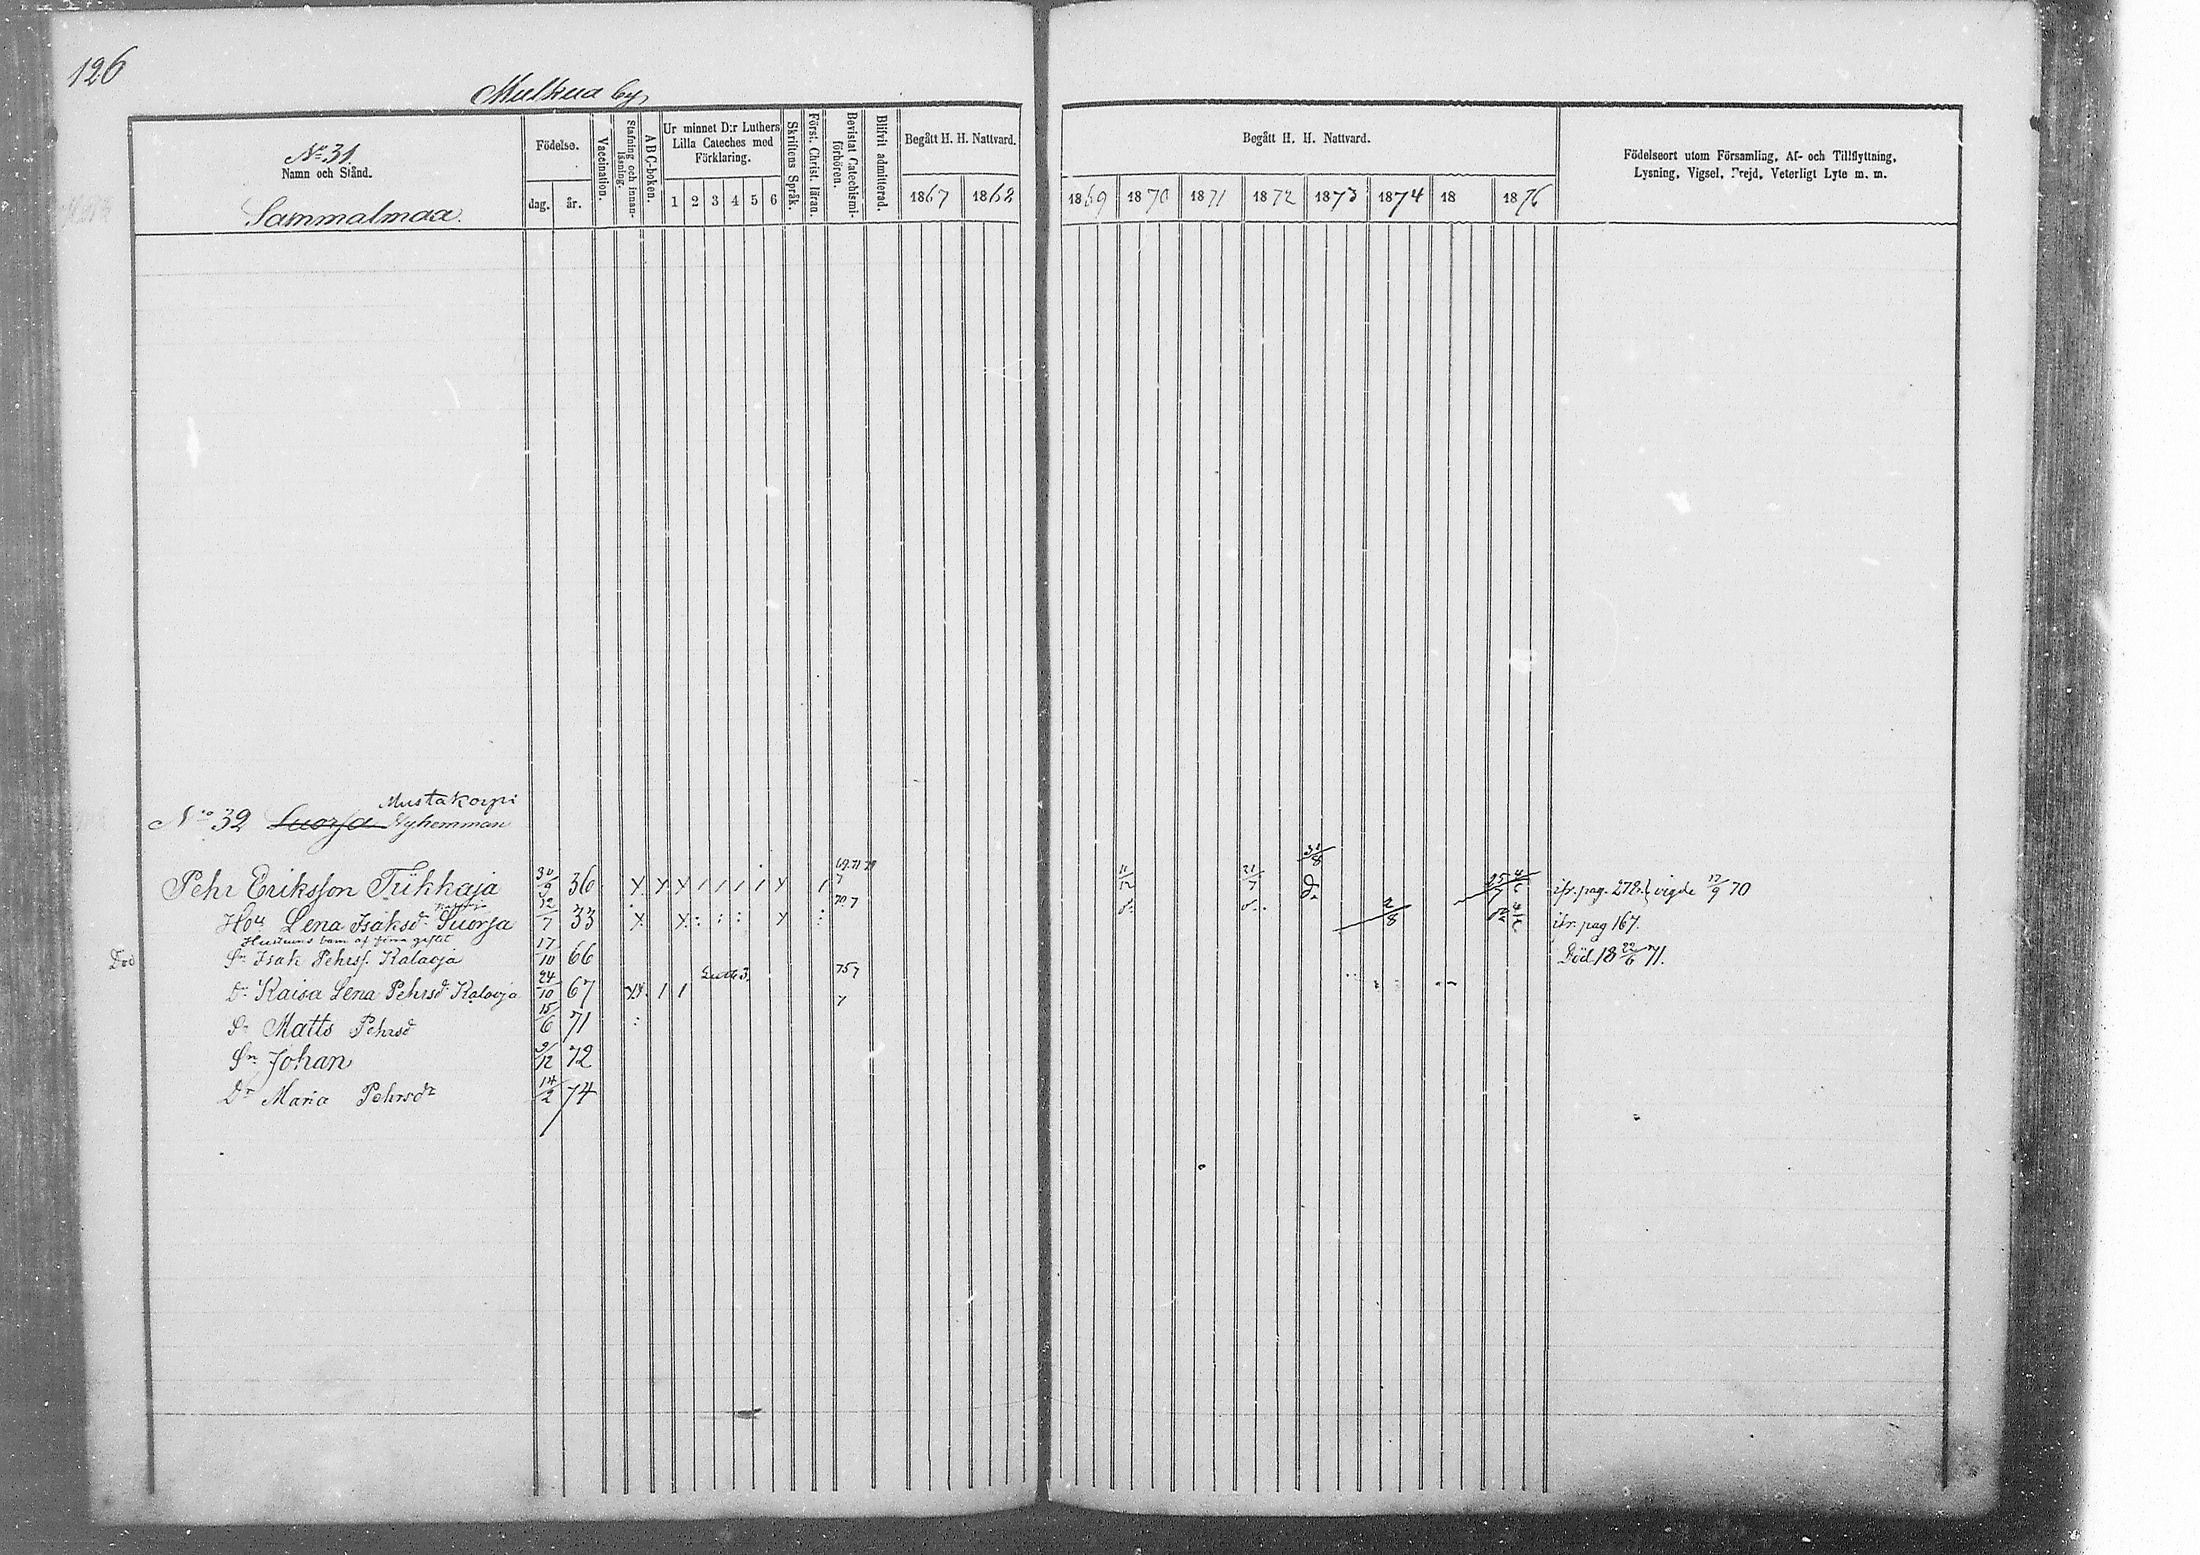 126
Mulkua by
No 31.
Namn och Stånd.
Sammalmaa.
Födelse.
dag. år.
Vaccination.
Stafning och innanläsning.
ABC-boken.
Ur minnet D:r Luthers Lilla Cateches med Förklaring.
1 2 3 4 5 6
Skriftens Språk.
Först. Christ. läran.
Bevistat Catechismiförhören.
Blifvit admitterad.
Begått H. H. Nattvard.
1867 1868
Begått H. H. Nattvard.
1869 1870 1871 1872 1873 1874 18 1876
Födelseort utom Församling, Af- och Tillflyttning,
Lysning, Vigsel, Frejd, Veterligt Lyte m. m.
Mustakorpi
No 32 Suorsa Nyhemman
Pehr Eriksson Tükkaja 30/9 36 11/12 21/7 30/8 ifr. pag. 278. vigde 17/9 70
Hou Lena Isaksd. Suorsa 12/7 33 2/8 ifr. pag 167.
Hustruns barn af förra giftet
Död Sn Isak Pehrss. Kalaoja 17/10 66 Död 18 22/6 71.
Dr Kaisa Lena Pehrsd. Kalaoja 24/10 67
Sn Matts Pehrsd 15/6 71
Sn Johan 9/12 72
Dr Maria Pehrsdr 14/2 74